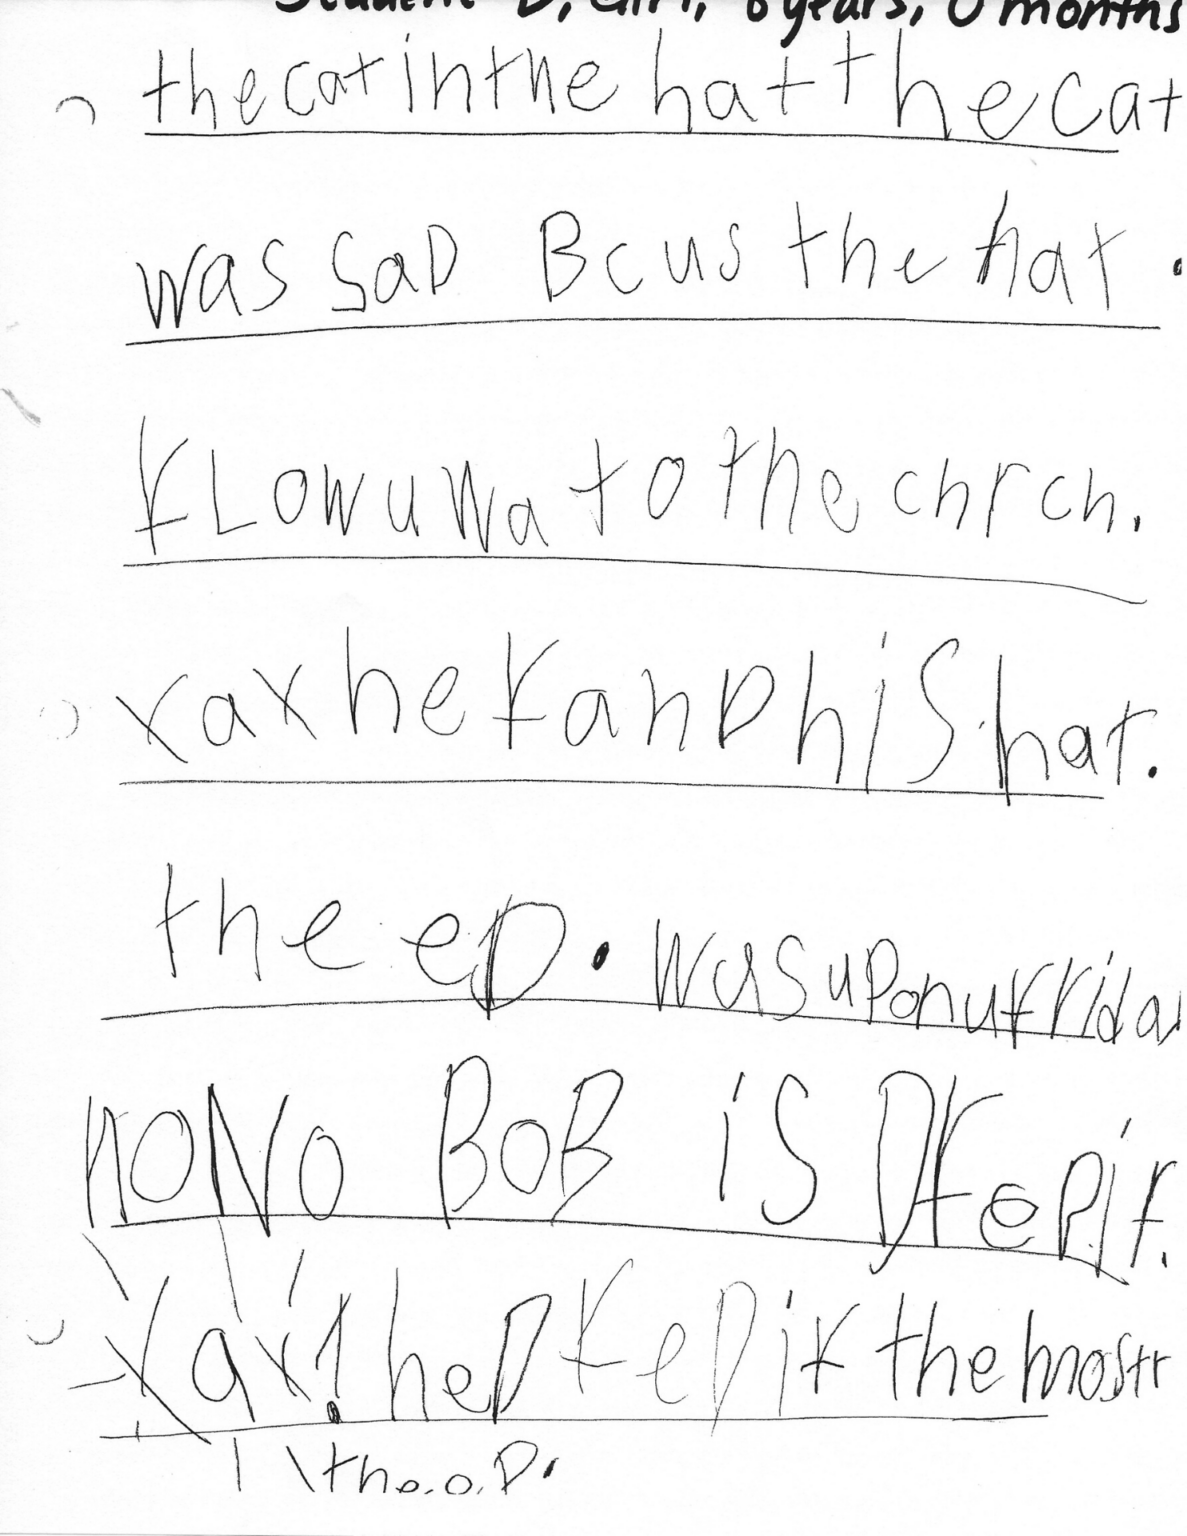 Student D, Girl, 6 years, 0 months
thecatinthe hatthecat
was saD Bcus the hat.
fLowuwa to the chrch.
yayhe fanDhiShat.
the eD. wasuponufrida
nONo BoB is Dfepit.
yay! heD fepit themostr
the.o.D.